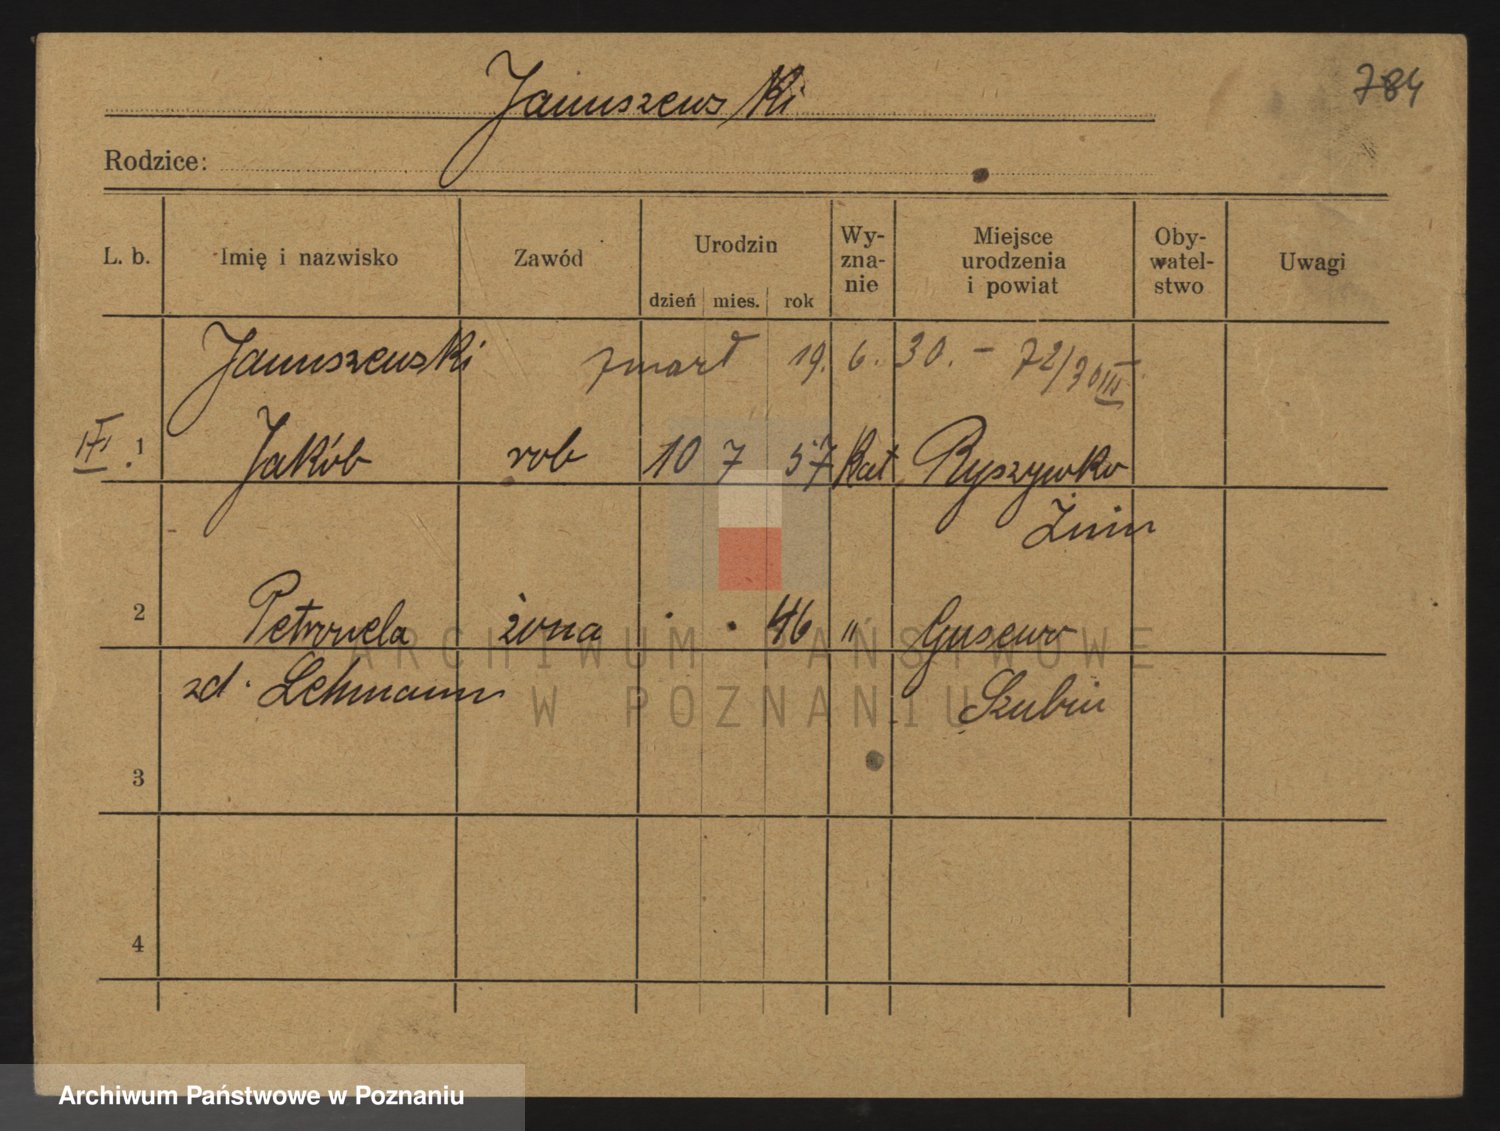 Januszewski
784
Rodzice:
L. b. Imię i nazwisko Zawód Urodzin dzień mies. rok Wy-zna-nie Miejsce urodzenia i powiat Oby-watel-stwo Uwagi
Januszewski zmarł 19. 6. 30. - 72/30 III
1 Jakób rob 10 7 57 Kat Ryszywko
Żnin
2 Petronela żona . . 46 " Gąsewo
zd. Lehmann Szubin
3
4
ARCHIWUM PAŃSTWOWE
W POZNANIU
Archiwum Państwowe w Poznaniu